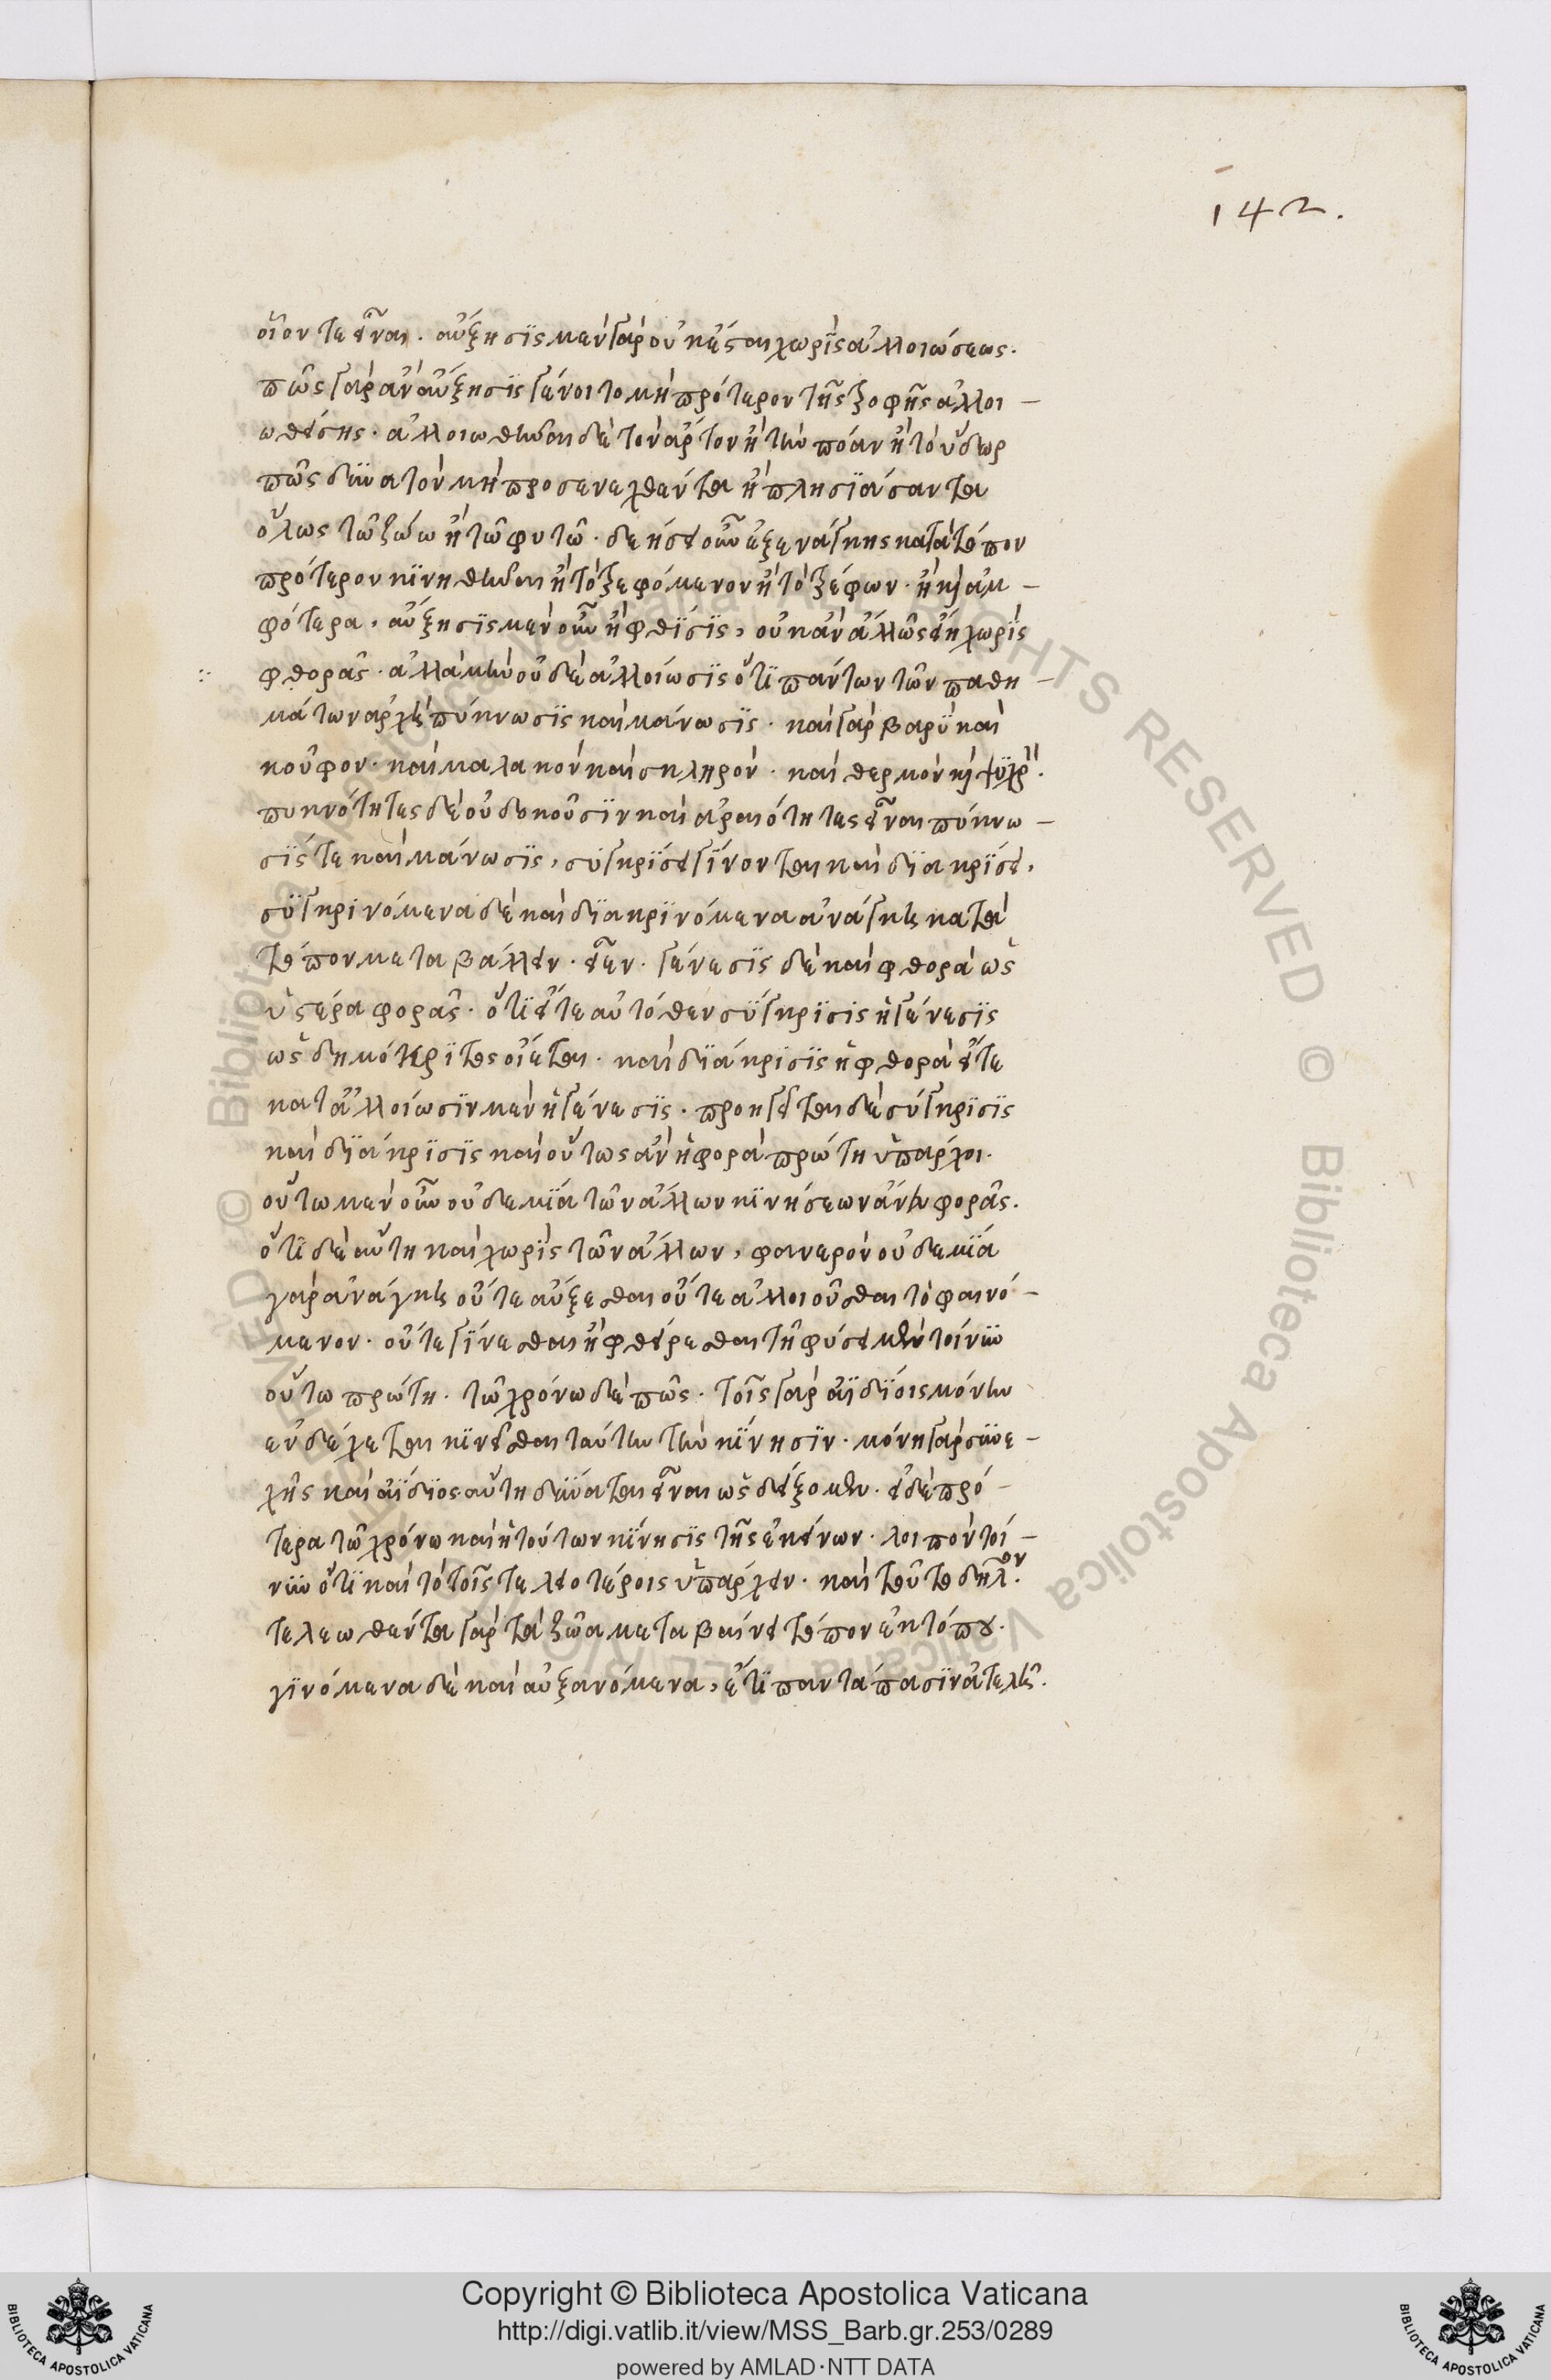 142.
οἷόν τε εἶναι. αὔξησις μὲν γὰρ οὐκ ἔσται χωρὶς ἀλλοιώσεως.
πῶς γὰρ ἂν αὔξησις γένοιτο μὴ πρότερον τῆς τροφῆς ἀλλοι-
ωθείσης. ἀλλοιωθῆναι δὲ τὸν ἄρτον ἢ τὴν πόαν ἢ τὸ ὕδωρ
πῶς δυνατὸν μὴ προσενεχθέντα ἢ πλησιάσαντα
ὅλως τῶ ζώω ἢ τῶ φυτῶ. δεήσει οὖν ἐξ ἀνάγκης κατὰ τόπον
πρότερον κινηθῆναι ἢ τὸ τρεφόμενον ἢ τὸ τρέφων. ἢ καὶ ἀμ-
φότερα, αὔξησις μὲν οὖν ἢ φθίσις, οὐκ ἂν ἄλλως εἴη χωρὶς
φθορᾶς. ἀλλὰ μὴν οὐδὲ ἀλλοίωσις ὅτι πάντων τῶν παθη-
μάτων ἀρχὴ πύκνωσις καὶ μάνωσις. καὶ γὰρ βαρὺ καὶ
κοῦφον. καὶ μαλακὸν καὶ σκληρὸν. καὶ θερμὸν καὶ ψυχρὸν.
πυκνότητες δὲ οὐ δοκοῦσιν καὶ ἀραιότητες εἶναι πύκνω-
σίς τε καὶ μάνωσις, συγκρίσει γίνονται καὶ διακρίσει,
συγκρινόμενα δὲ καὶ διακρινόμενα ἀνάγκη κατὰ
τόπον μεταβάλλειν. εἶεν. γένεσις δὲ καὶ φθορὰ ὡς
ὑστέρα φορᾶς. ὅτι εἴτε αὐτόθεν σύγκρισις ἡ γένεσις
ὡς δημόκριτος οἴεται. καὶ διάκρισις ἡ φθορὰ εἴτε
κατ' ἀλλοίωσιν μὲν ἡ γένεσις. προηγεῖται δὲ σύγκρισις
καὶ διάκρισις καὶ οὕτως ἂν ἡ φορὰ πρώτη ὑπάρχοι.
οὕτω μὲν οὖν οὐδεμία τῶν ἄλλων κινήσεων ἄνευ φορᾶς.
ὅτι δὲ αὕτη καὶ χωρὶς τῶν ἄλλων, φανερὸν οὐδεμία
γὰρ ἀνάγκη οὔτε αὔξεσθαι οὔτε ἀλλοιοῦσθαι τὸ φαινό-
μενον. οὔτε γίνεσθαι ἢ φθείρεσθαι τῆ φύσει μὲν τοίνυν
οὕτω πρώτη. τῶ χρόνω δὲ πῶς. τοῖς γὰρ ἀϊδίοις μόνην
ἐνδέχεται κινεῖσθαι ταύτην τὴν κίνησιν. μόνη γὰρ συνε-
χὴς καὶ ἀΐδιος αὕτη δύναται εἶναι ὡς δείξομεν. εἰ δὲ πρό-
τερα τῶ χρόνω καὶ ἡ τούτων κίνησις τῆς ἐκείνων. λοιπὸν τοί-
νυν ὅτι καὶ τὸ τοῖς τελειοτέροις ὑπάρχειν. καὶ τοῦτο δῆλον.
τελεωθέντα γὰρ τὰ ζῶα μεταβαίνει τόπον ἐκ τόπου.
γινόμενα δὲ καὶ αὐξανόμενα, ἔτι παντάπασιν ἀτελῆ.
Copyright © Biblioteca Apostolica Vaticana
http://digi.vatlib.it/view/MSS_Barb.gr.253/0289
powered by AMLAD·NTT DATA